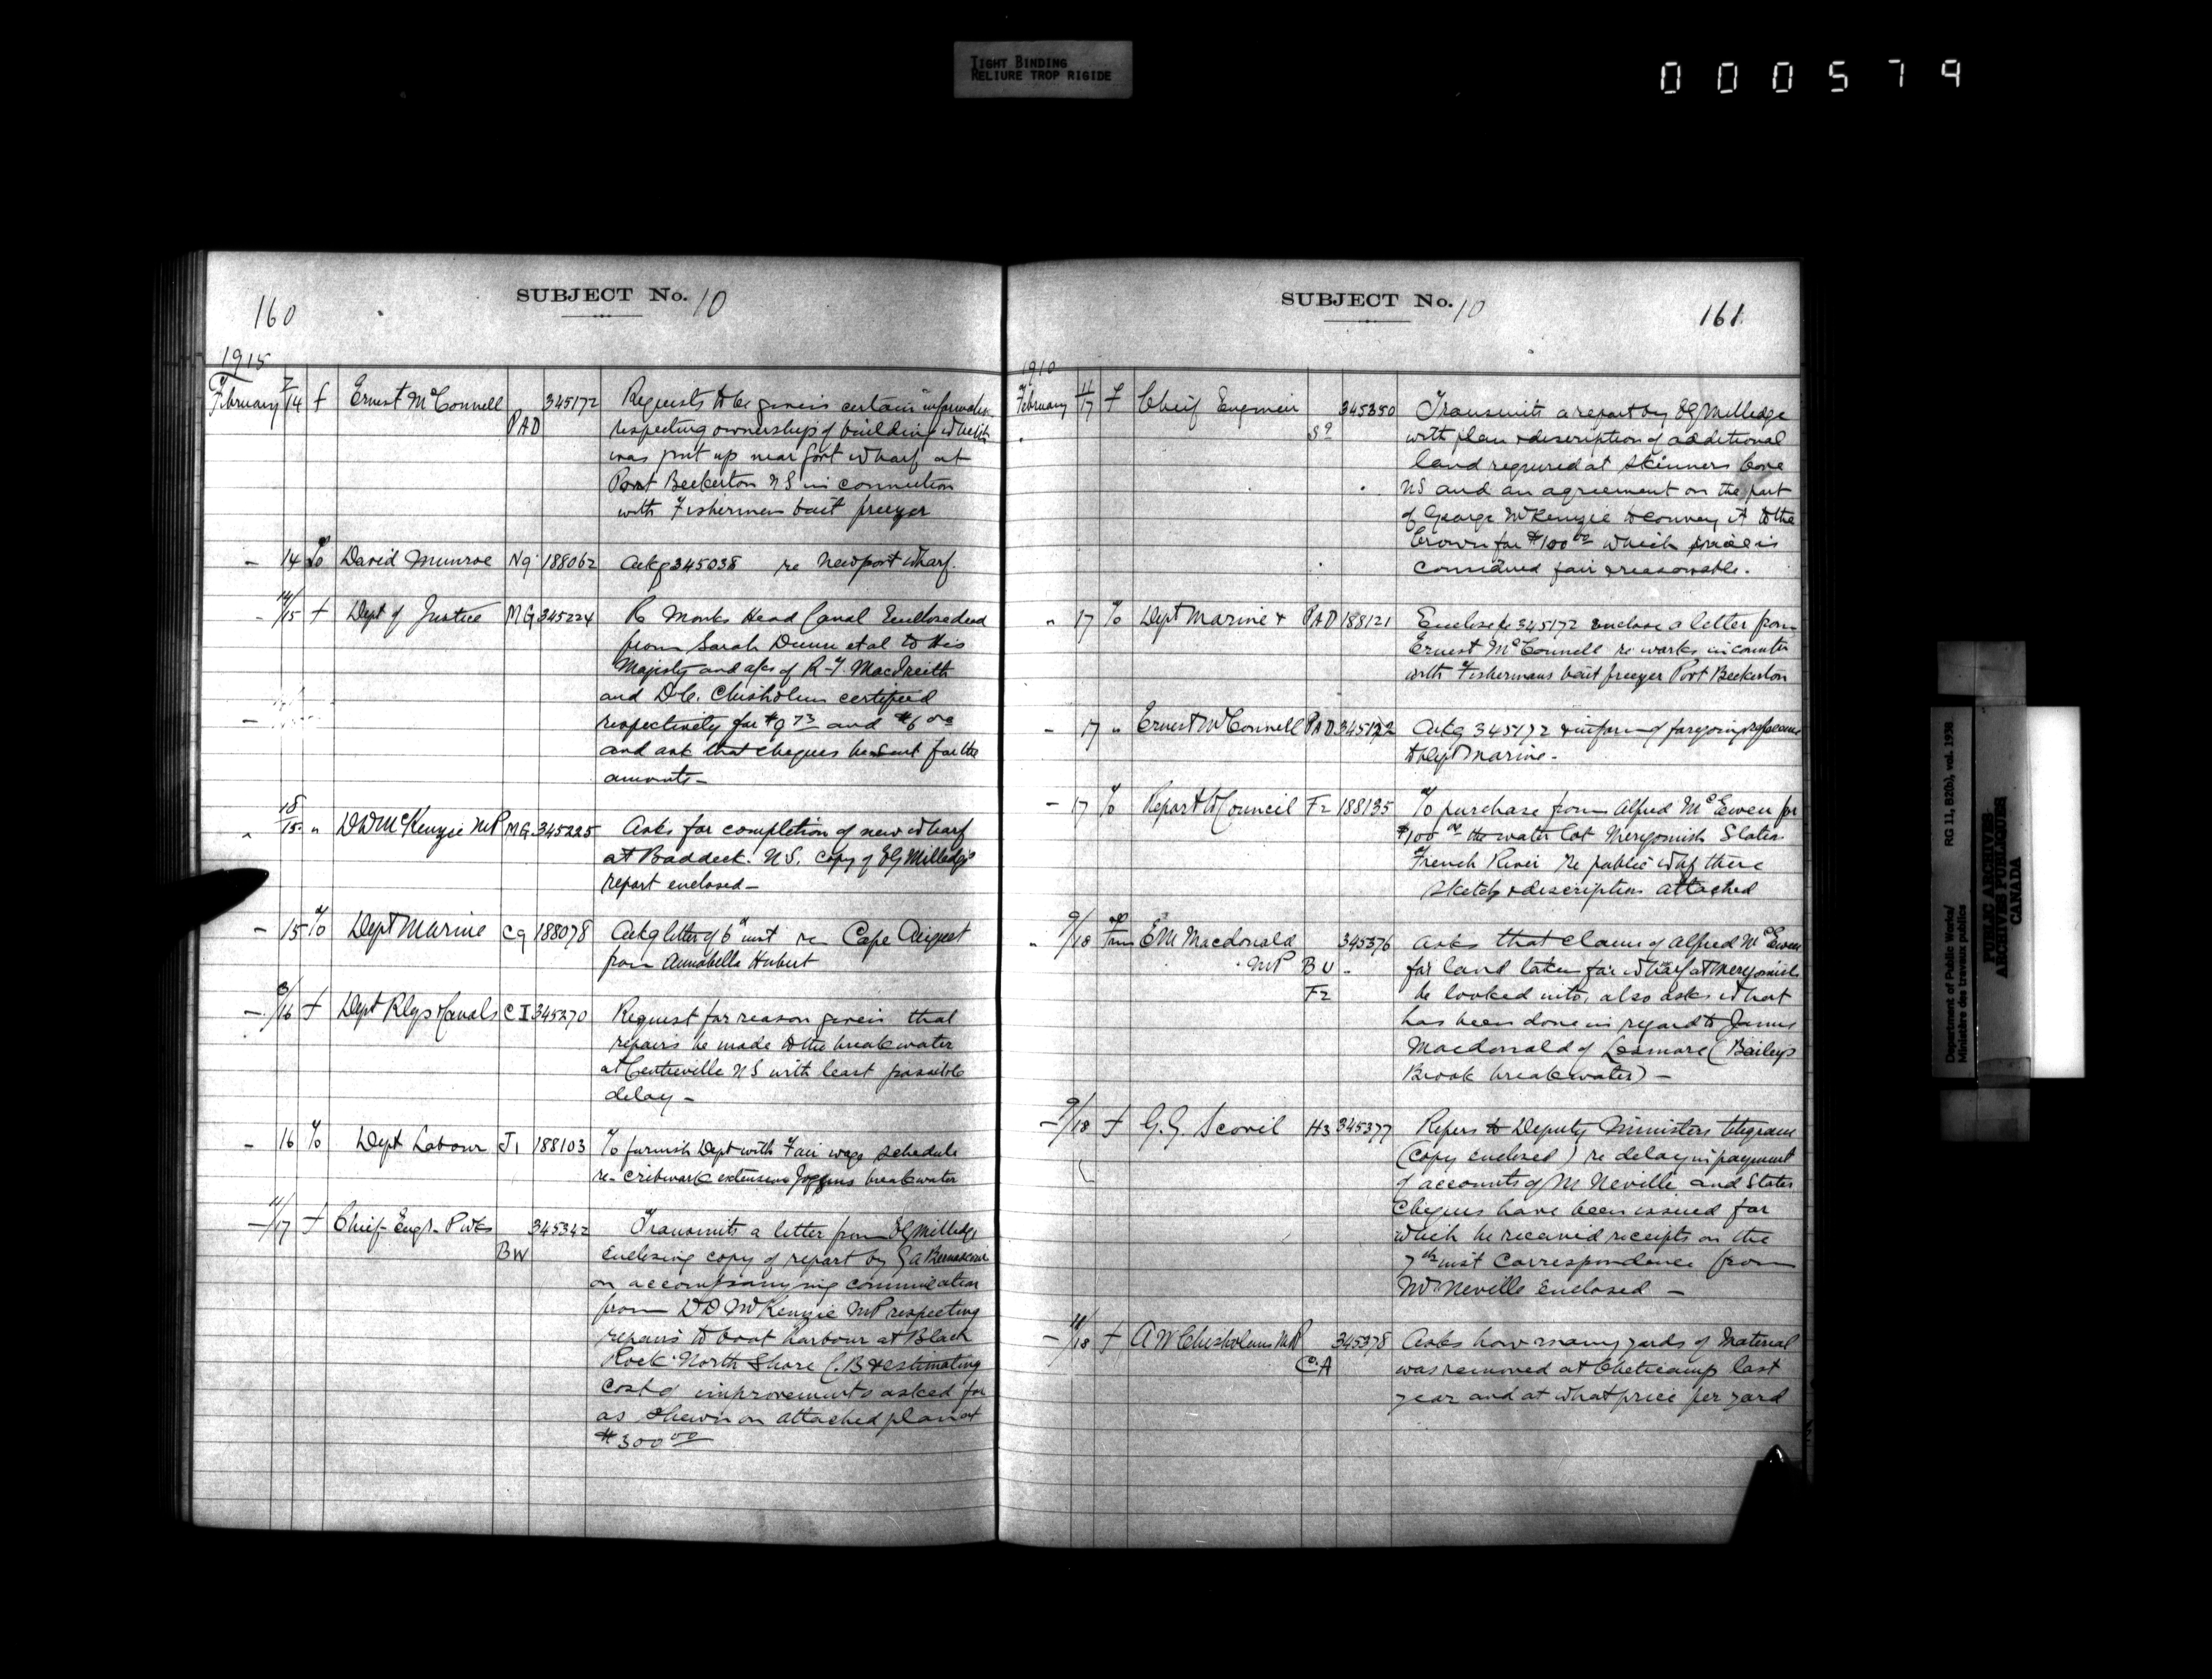 TIGHT BINDING
RELIURE TROP RIGIDE
000579
160
SUBJECT No. 10
1915
February 7/14 f Ernest McConnell PAD 345172 Requests to be given certain information
respecting ownership of building which
was put up near Govt wharf at
Port Beckerton NS in connection
with Fishermen bait freezer
- 14 To David Munroe N9 188062 Ackg 345038 re Newport wharf.
- 14/15 f Dept of Justice MG 345224 Re Monks Head Canal Enclose deed
from Sarah Dunn et al to His
Majesty and a/cs of R-T. MacIreith
and D.C. Chisholm certified
respectively for $9 73 and $6 00
and ask that cheques be sent for the
amounts -
" 15 " DD McKenzie MP MG 345225 Asks for completion of new wharf
at Baddeck. N.S. copy of EG Milledge
report enclosed -
- 15 To Dept Marine C9 188078 Ackg letter of 6th inst re Cape August
from Annabella Hubert
- 16 f Dept Rlys & Canals CI 345270 Request for reason given that
repairs be made to the breakwater
at Centreville NS with least possible
delay -
- 16 To Dept Labour J1 188103 To furnish Dept with Fair wage schedule
re - cribwork extension Joggins breakwater
- 11/17 f Chief Engr. P Wks BW 345342 Transmits a letter from EG Milledge
enclosing copy of report by G A
on accompanying communication
from DD McKenzie MP respecting
repairs to boat harbour at Black
Rock North Shore C.B & estimating
cost of improvements asked for
as shewn on attached plan at
$300 00
SUBJECT No. 10
161
1910
February 11/17 f Chief Engineer S9 345350 Transmits a report by EG Milledge
with plan & description of additional
land required at Skinners Cove
NS and an agreement on the part
of George McKenzie to convey it to the
Crown for $100 00 which price is
considered fair & reasonable.
" 17 To Dept Marine & PAD 188121 Enclose 345172 enclose a letter from
Ernest McConnell re works in connectn
with Fishermans bait freezer Port Beckerton
- 17 " Ernest McConnell PAD 345122 Ackg 345172 & inform of foregoing reference
to Dept Marine -
- 17 To Report to Council F2 188135 To purchase from Alfred McEwen for
$100 00 the water lot Merigomish Station
French River re public whf there
sketch & description attached
" 9/18 from EM Macdonald MP BU - F2 345376 Asks that claim of Alfred McEwen
for land taken for wharf at Merigomish
be looked into, also asks what
has been done in regard to James
Macdonald of Lismore (Baileys
Brook breakwater) -
- 9/18 f G.G. Scovil H3 345377 Refers to Deputy Ministers telegram
(copy enclosed) re delay in payment
of accounts of M Neville and States
Cheques have been issued for
which he received receipts on the
7th inst Correspondence from
Mr Neville enclosed -
- 11/18 f A W Chisholm MP CA 345378 Asks how many yards of Material
was removed at Cheticamp last
year and at what price per yard
Department of Public Works/
Ministère des travaux publics
RG 11, B2(b), vol. 1938
PUBLIC ARCHIVES
ARCHIVES PUBLIQUES
CANADA